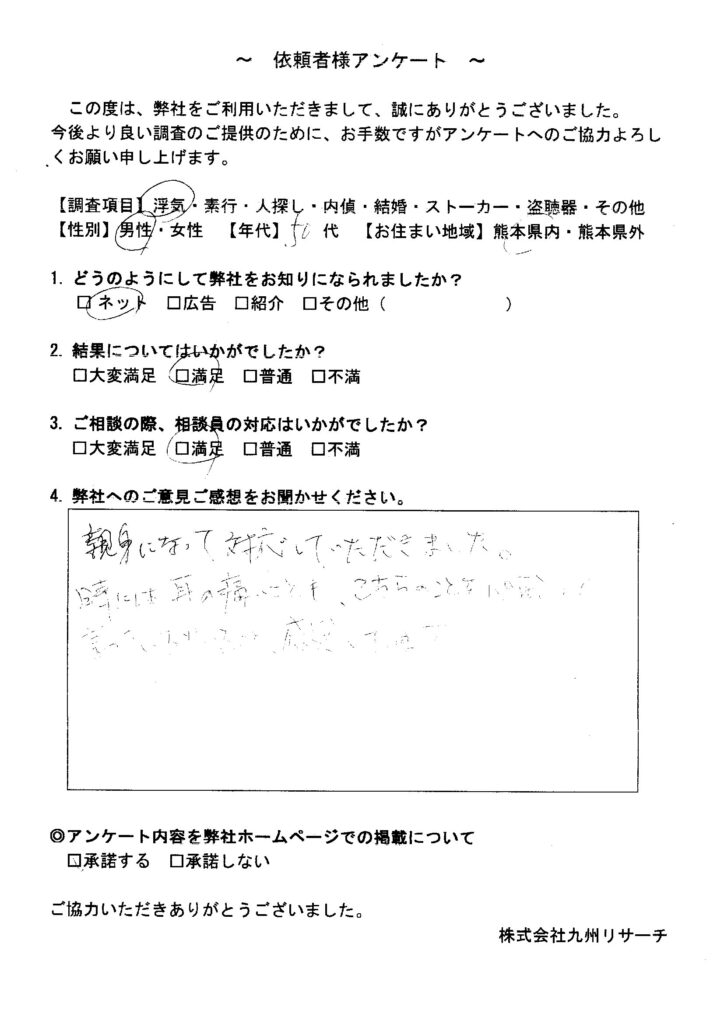 ～ 依頼者様アンケート ～
この度は、弊社をご利用いただきまして、誠にありがとうございました。
今後より良い調査のご提供のために、お手数ですがアンケートへのご協力よろし
くお願い申し上げます。
【調査項目】浮気・素行・人探し・内偵・結婚・ストーカー・盗聴器・その他
【性別】男性・女性 【年代】50代 【お住まい地域】熊本県内・熊本県外
1. どうのようにして弊社をお知りになられましたか？
□ネット □広告 □紹介 □その他（ ）
2. 結果についてはいかがでしたか？
□大変満足 □満足 □普通 □不満
3. ご相談の際、相談員の対応はいかがでしたか？
□大変満足 □満足 □普通 □不満
4. 弊社へのご意見ご感想をお聞かせください。
親身になって対応していただきました。
時には耳の痛いことも、こちらのことを
感謝して
◎アンケート内容を弊社ホームページでの掲載について
□承諾する □承諾しない
ご協力いただきありがとうございました。
株式会社九州リサーチ